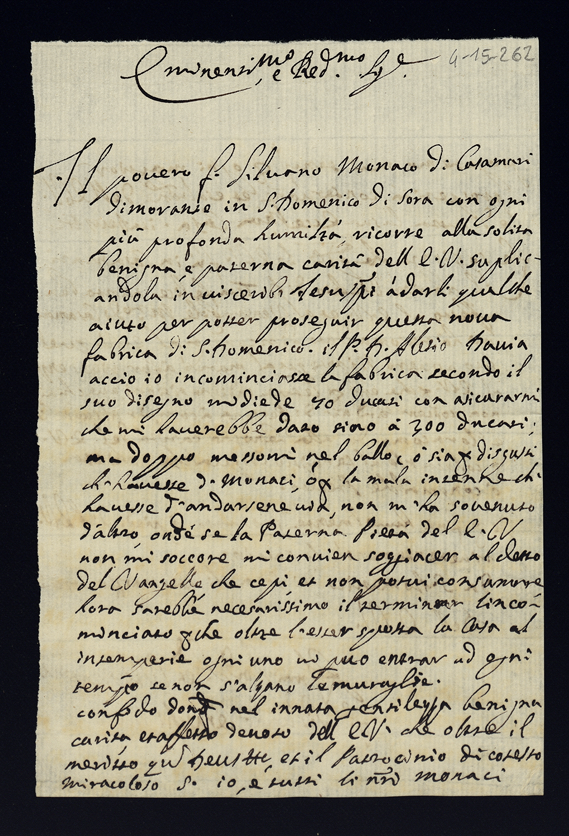 Eminensi.mo e Red.mo Sg.e
4-15-262
Il povero f. Siluano Monaco di Casamari
dimorante in S. Domenico di Sora con ogni
più profonda humiltà, ricorre alla solita
benigna, e paterna carità dell E.V. suplic-
andola in visceribs Jesu xpi à darli qualche
aiuto per potter proseguir questa nova
fabrica di S. Domenico. il P. Alesio havia
accio io incominciasse la fabrica secondo il
suo disegno mi diede 70 ducati con asicurarmi
che mi haverebbe dato sino à 300 ducati;
ma doppo messomi nel ballo, ò sia disgusti
ch'havesse d. Monaci, ò la mala intentione ch
havesse d'andarsene via, non m'ha sovenuto
d'altro, onde se la Paterna Pietà del E.V.
non mi soccore mi convien soggiacer al detto
del Vangelle che cepi et non potui consumare
hora sarebbe necesarissimo il terminar linco-
minciato che oltre l'esser sposta la Casa al
intemperie ogni uno vi puo entrar ad ogni
tempo se non s'alzano le muraglie.
confido nel innata gentilezza benigna
carita et affetto devoto dell E.V. che oltre il
meritto, et il Patrocinio di cotesto
miracoloso S. io, e tutti li nri monaci